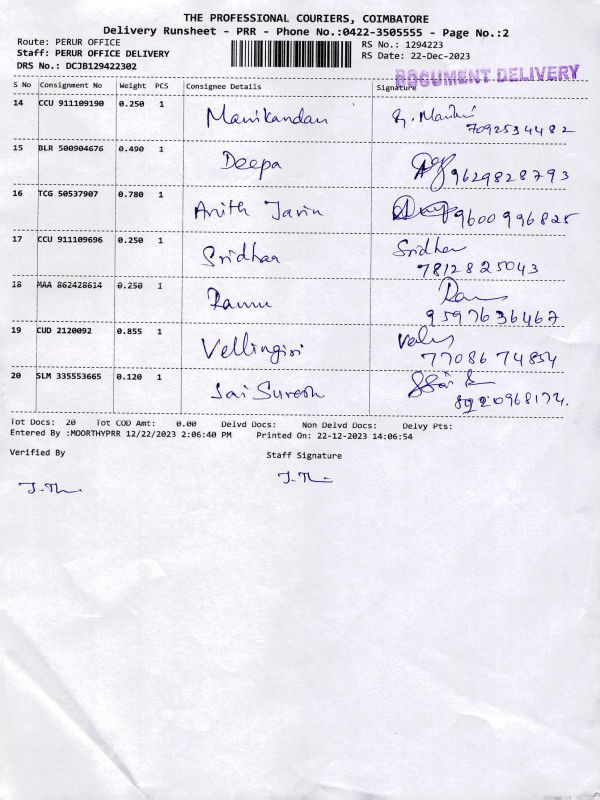 THE PROFESSIONAL COURIERS, COIMBATORE
Delivery Runsheet - PRR - Phone No.:0422-3505555 - Page No.:2
Route: PERUR OFFICE
RS No.: 1294223
Staff: PERUR OFFICE DELIVERY
RS Date: 22-Dec-2023
DRS No.: DCJB129422302
DOCUMENT DELIVERY
S No Consignment No Weight PCS Consignee Details Signature
14 CCU 911109190 0.250 1 Manikandan
7092534482
15 BLR 500904676 0.490 1 Deepa 9629828793
16 TCG 50537907 0.780 1 Anith Javin 9600996825
17 CCU 911109696 0.250 1 Sridhar Sridhar
7812825043
18 MAA 862428614 0.250 1 Ramu
9597636467
19 CUD 2120092 0.855 1 Vellingiri
7708674854
20 SLM 335553665 0.120 1 Sai Suresh
Tot Docs: 20 Tot COD Amt: 0.00 Delvd Docs: Non Delvd Docs: Delvy Pts:
Entered By :MOORTHYPRR 12/22/2023 2:06:40 PM Printed On: 22-12-2023 14:06:54
Verified By Staff Signature